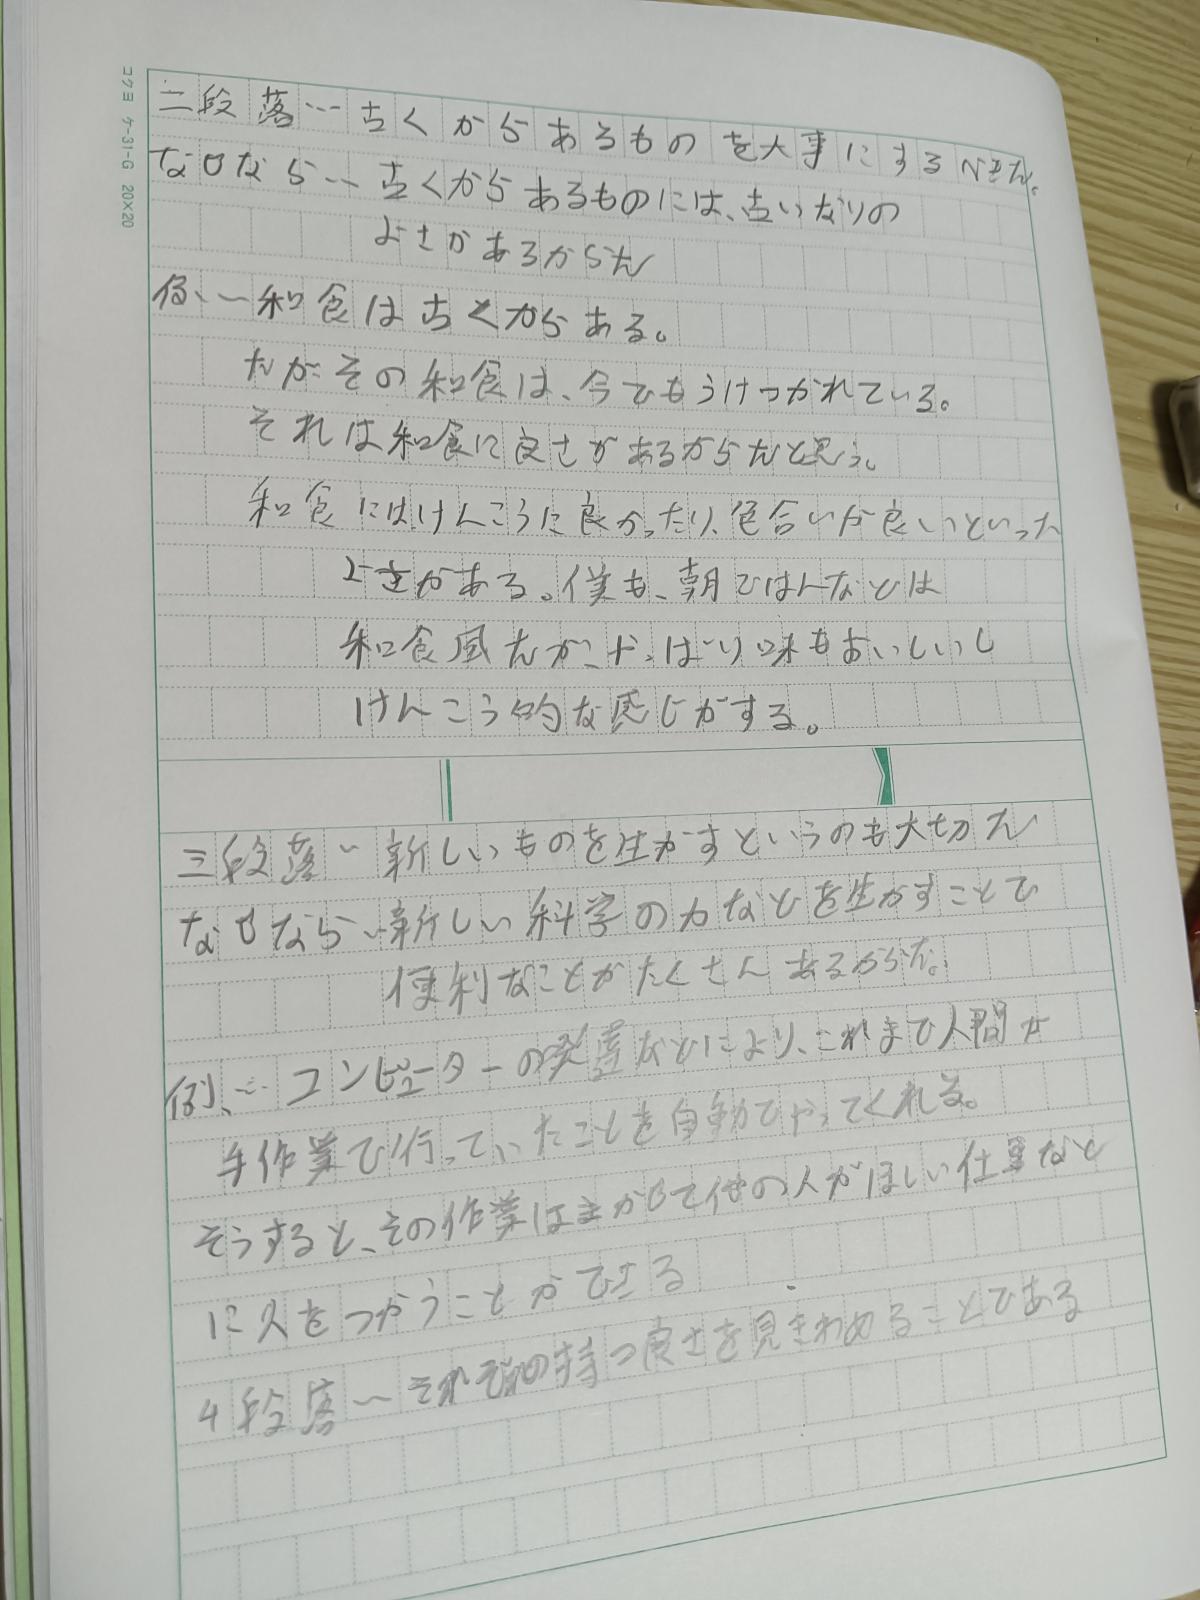 コクヨ ケ-31-G 20×20
二段落…古くからあるものを大事にするべきだ。
なぜなら…古くからあるものには、古いなりの
よさがあるからだ
例、…和食は古くからある。
だがその和食は、今でもうけつがれている。
それは和食に良さがあるからだと思う。
和食にはけんこうに良かったり、色合いが良いといった
よさがある。僕も、朝ごはんなどは
和食風だが、やっぱり味もおいしいし
けんこう的な感じがする。
三段落…新しいものを生かすというのも大切だ
なぜなら…新しい科学の力などを生かすことで
便利なことがたくさんあるからだ。
例、…コンピューターの発達などにより、これまで人間が
手作業で行っていたことを自動でやってくれる。
そうすると、その作業はまかせて他の人がほしい仕事など
に人をつかうことができる
4段落…それぞれの持つ良さを見きわめることである